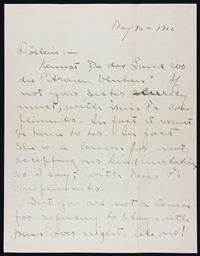 May 16 – 1912
Röslein: –
Kennst Du das Land wo
die Citronen blühen? If
not your sister surely
must, with Miss P's com-
pliments. In fact it must
be home to her. In fact
she is a lemon for not
accepting my kind invitation
as I say; with Miss P's
compliments.
But you are not a lemon
for refusing to stay with
last night. Oh no!